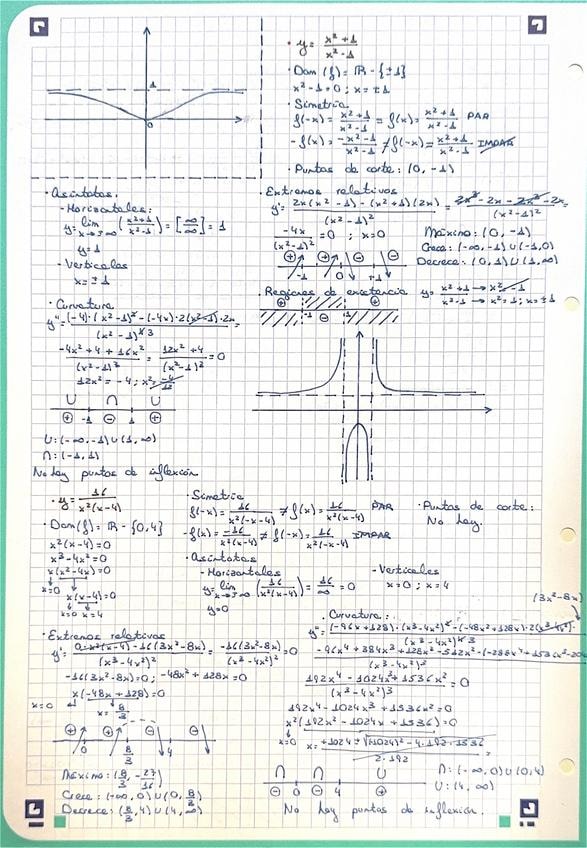 1
0
· y = (x² + 1)/(x² - 1)
· Dom (f) = ℝ - {±1}
x² - 1 = 0 ; x = ±1
· Simetría
f(-x) = (x² + 1)/(x² - 1) = f(x) = (x² + 1)/(x² - 1) PAR
-f(x) = (-x² - 1)/(x² - 1) ≠ f(-x) = (x² + 1)/(x² - 1) IMPAR
· Puntos de corte: (0, -1)
· Asíntotas.
- Horizontales:
y = lim x→±∞ ((x² + 1)/(x² - 1)) = [∞/∞] = 1
y = 1
- Verticales
x = ±1
· Extremos relativos
y' = (2x(x² - 1) - (x² + 1)(2x))/(x² - 1)² = (2x³ - 2x - 2x³ - 2x)/(x² - 1)² =
-4x/(x² - 1)² = 0 ; x = 0
Máximo: (0, -1)
Crece: (-∞, -1) ∪ (-1, 0)
Decrece: (0, 1) ∪ (1, ∞)
⊕ ⊕ ⊖ ⊖
-1 0 +1
· Regiones de existencia
y = (x² + 1)/(x² - 1) → x² = -1
→ x² = 1 ; x = ±1
⊕ ⊖ ⊕
-1 1
· Curvatura
y'' = ((-4)·(x² - 1)² - (-4x)·2(x² - 1)·2x)/(x² - 1)⁴ ³
(-4x² + 4 + 16x²)/(x² - 1)³ = (12x² + 4)/(x² - 1)³ = 0
12x² = -4 ; x² = -4/12
∪ ∩ ∪
⊕ -1 ⊖ 1 ⊕
∪: (-∞, -1) ∪ (1, ∞)
∩: (-1, 1)
No hay puntos de inflexión
· y = 16/(x²(x - 4))
· Dom (f) = ℝ - {0, 4}
x²(x - 4) = 0
x³ - 4x² = 0
x(x² - 4x) = 0
x = 0 x(x - 4) = 0
x = 0 x = 4
· Simetría
f(-x) = 16/(x²(-x - 4)) ≠ f(x) = 16/(x²(x - 4)) PAR
-f(x) = -16/(x²(x - 4)) ≠ f(-x) = 16/(x²(-x - 4)) IMPAR
· Puntos de corte:
No hay.
· Asíntotas
- Horizontales
y = lim x→±∞ (16/(x²(x - 4))) = 16/∞ = 0
y = 0
- Verticales
x = 0 ; x = 4
· Extremos relativos
y' = (0·x²(x - 4) - 16(3x² - 8x))/(x³ - 4x²)² = -16(3x² - 8x)/(x³ - 4x²)² = 0
-16(3x² - 8x) = 0 ; -48x² + 128x = 0
x(-48x + 128) = 0
x = 0 x = 8/3
⊕ ⊕ ⊖ ⊖
0 8/3 4
Máximo: (8/3, -27/16)
Crece: (-∞, 0) ∪ (0, 8/3)
Decrece: (8/3, 4) ∪ (4, ∞)
(3x² - 8x)
· Curvatura:
y'' = ((-96x + 128)·(x³ - 4x²)² - (-48x² + 128x)·2(x³ - 4x²)·
(x³ - 4x²)⁴ ³
(x³ - 4x²)³
(192x⁴ - 1024x³ + 1536x²)/(x³ - 4x²)³ = 0
192x⁴ - 1024x³ + 1536x² = 0
x²(192x² - 1024x + 1536) = 0
x = 0 x = (+1024 ± √((1024)² - 4·192·1536))/(2·192)
∩ ∩ ∪
⊖ 0 ⊖ 4 ⊕
∩: (-∞, 0) ∪ (0, 4)
∪: (4, ∞)
No hay puntos de inflexión.